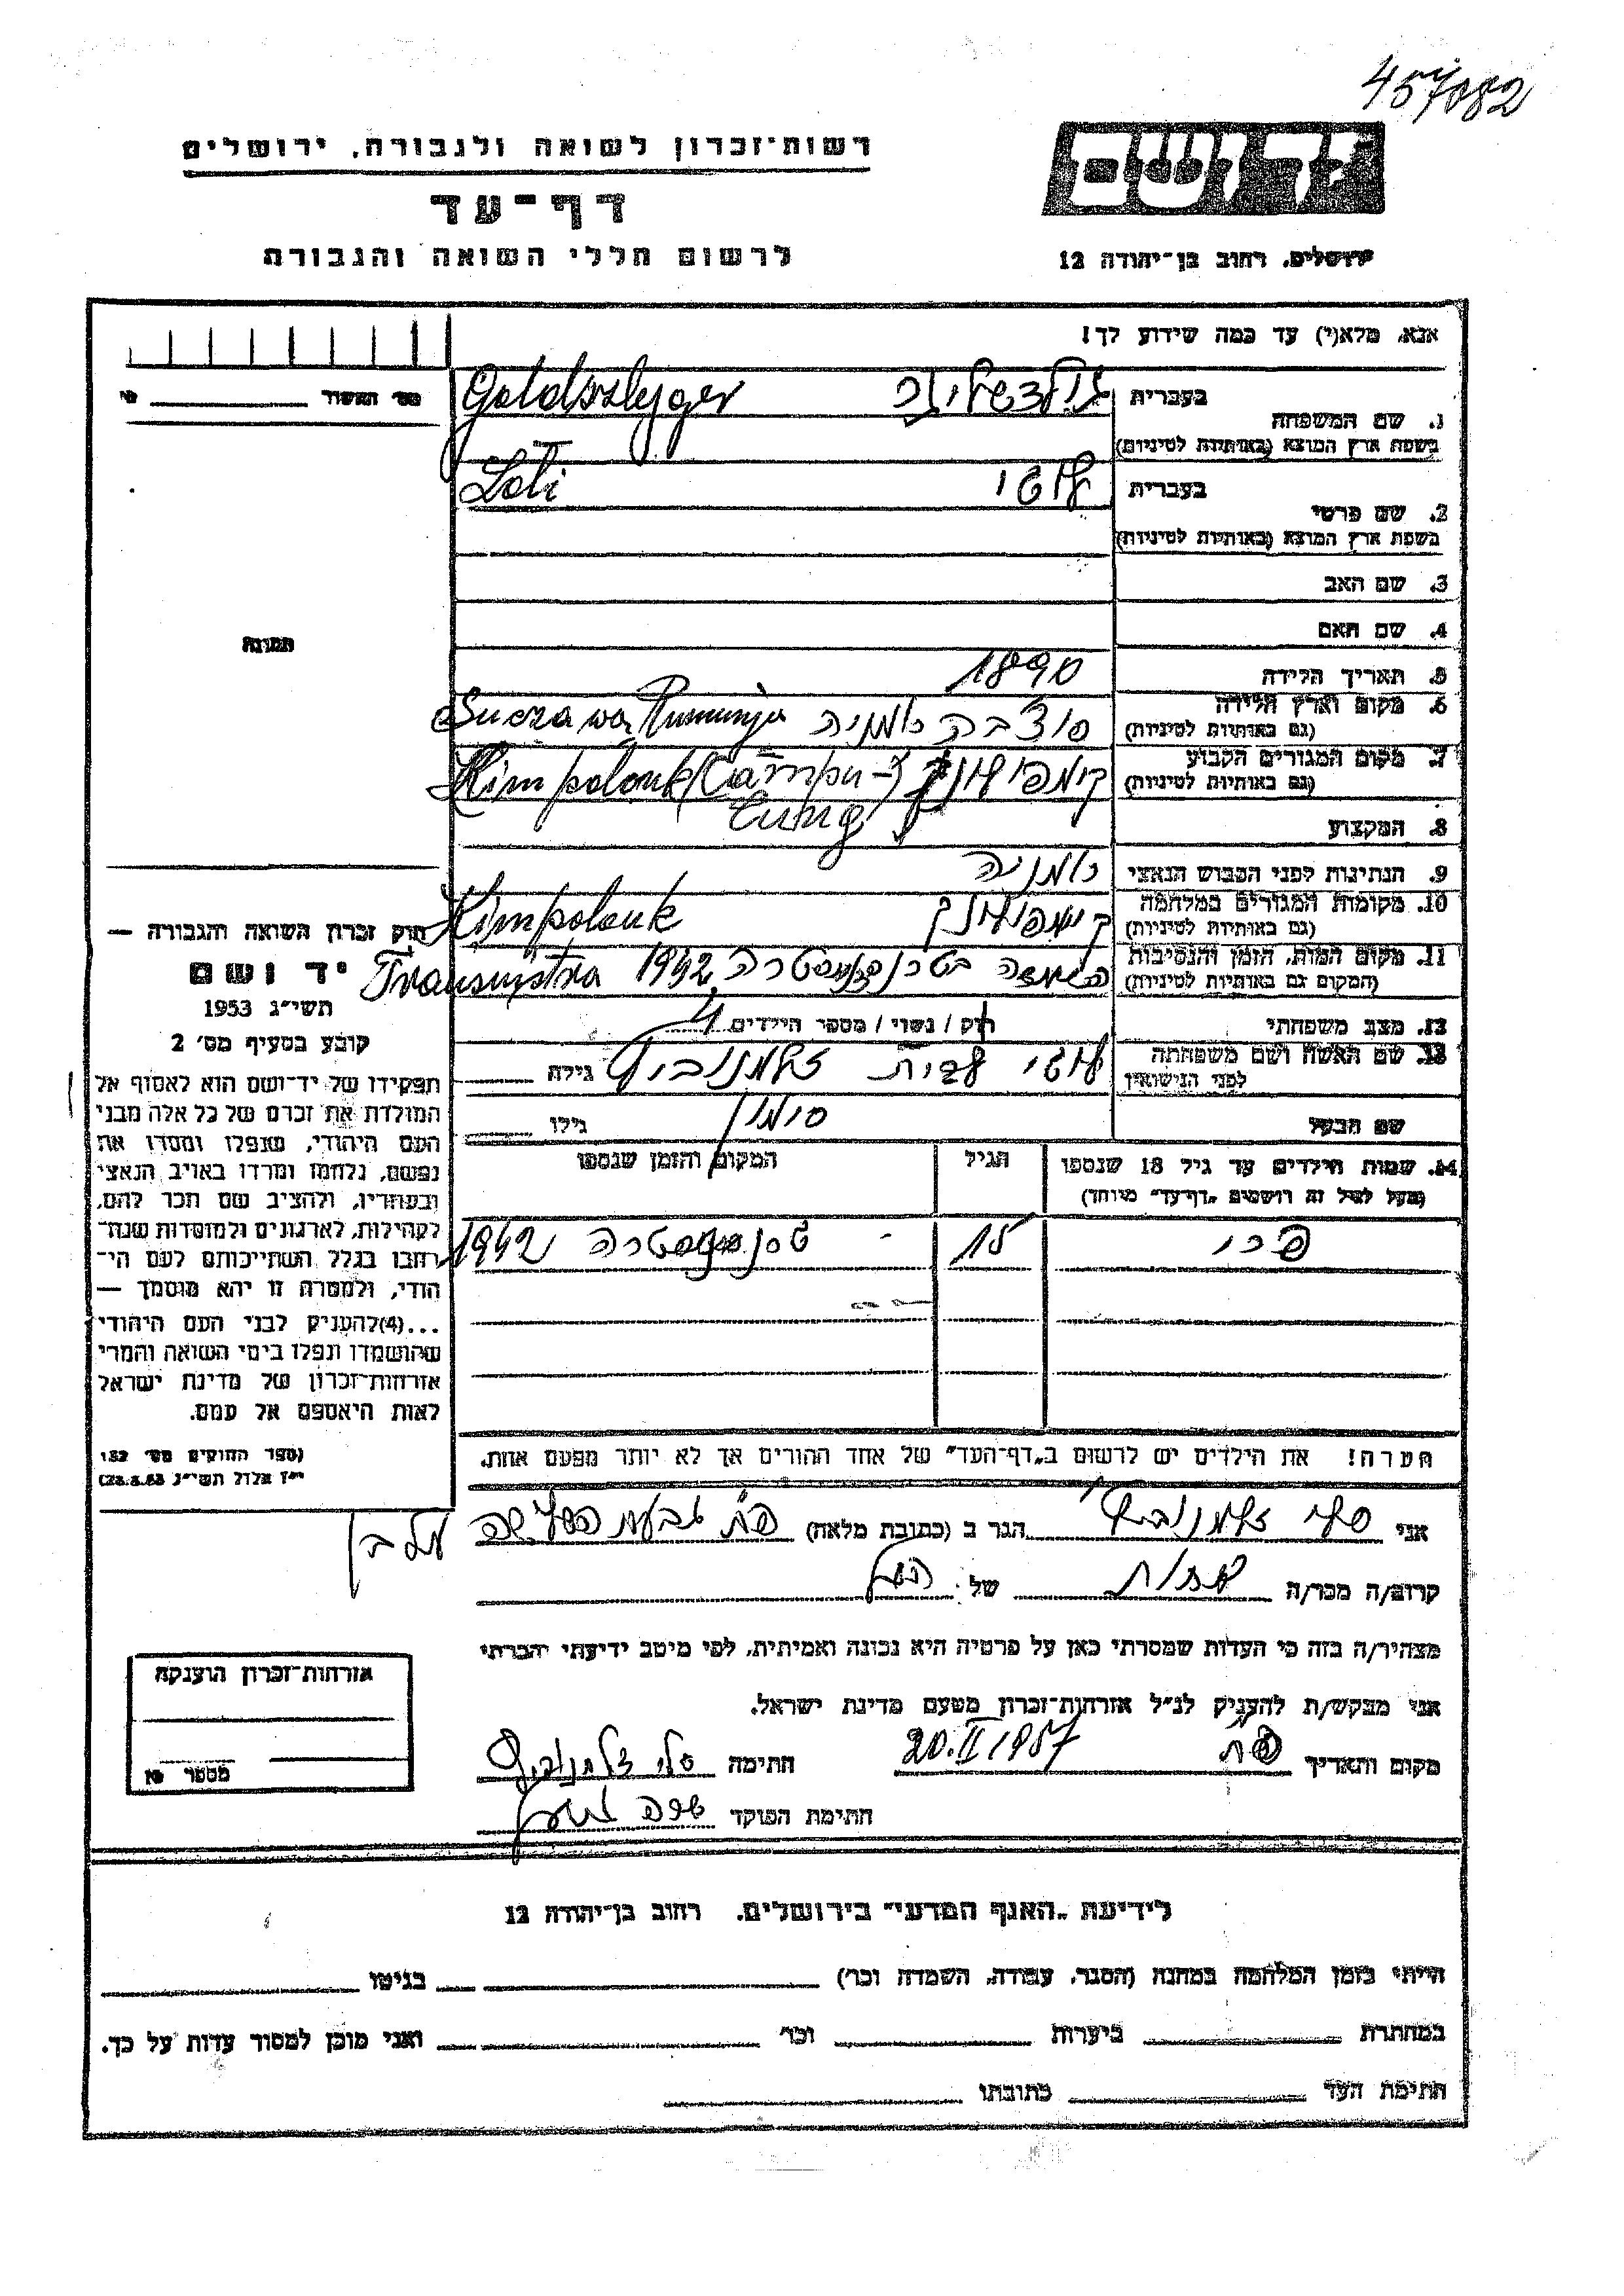 457082
רשות-זכרון לשואה ולגבורה, ירושלים
דף-עד
לרשום חללי השואה והגבורה
יד ושם
ירושלים, רחוב בן-יהודה 12
אנא, מלא(י) עד כמה שידוע לך!
מס' האשור
1. שם המשפחה
בעברית
בשפת ארץ המוצא (באותיות לטיניות)
Goldszlyger
2. שם פרטי
בעברית לוטי
בשפת ארץ המוצא (באותיות לטיניות)
Loti
3. שם האב
4. שם האם
תמונה
5. תאריך הלידה 1890
6. מקום וארץ הלידה
(גם באותיות לטיניות)
רומניה Suczawa Rumunja
7. מקום המגורים הקבוע
(גם באותיות לטיניות)
קימפולונג Kimpolonk (Câmpu-
Lung)
8. המקצוע
9. הנתינות לפני הכבוש הנאצי רומניה
10. מקומות המגורים במלחמה
(גם באותיות לטיניות)
קימפולונג Kimpolonk
11. מקום המות, הזמן והנסיבות
(המקום גם באותיות לטיניות)
1942 Transnystra
12. מצב משפחתי רוק / נשוי / מספר הילדים 4
13. שם האשה ושם משפחתה
לפני הנישואין
לוטי לבית זלמנוביץ גילה
שם הבעל סימון גילו
14. שמות הילדים עד גיל 18 שנספו
(מעל לגיל זה רושמים "דף-עד" מיוחד)
הגיל
המקום והזמן שנספו
15 - 1942
הערה! את הילדים יש לרשום ב"דף-העד" של אחד ההורים אך לא יותר מפעם אחת.
חוק זכרון השואה והגבורה —
יד ושם
תשי"ג 1953
קובע בסעיף מס' 2
תפקידו של יד-ושם הוא לאסוף אל
המולדת את זכרם של כל אלה מבני
העם היהודי, שנפלו ומסרו את
נפשם, נלחמו ומרדו באויב הנאצי
ובעוזריו, ולהציב שם וזכר להם,
לקהילות, לארגונים ולמוסדות שנח-
רבו בגלל השתייכותם לעם הי-
הודי, ולמטרה זו יהא מוסמך —
...(4) להעניק לבני העם היהודי
שהושמדו ונפלו בימי השואה והמרי
אזרחות-זכרון של מדינת ישראל
לאות היאספם אל עמם.
(ספר החוקים מס' 132
י"ז אלול תשי"ג 28.8.53)
אני סלי זלמנוביץ הגר ב (כתובת מלאה) פת
קרוב/ה מכר/ה של
מצהיר/ה בזה כי העדות שמסרתי כאן על פרטיה היא נכונה ואמיתית, לפי מיטב ידיעתי והכרתי
אני מבקש/ת להעניק לנ"ל אזרחות-זכרון מטעם מדינת ישראל.
מקום ותאריך פת 20.II 1957 חתימה סלי זלמנוביץ
חתימת הפוקד
אזרחות-זכרון הוענקה
מספר
לידיעת "האגף המדעי" בירושלים, רחוב בן-יהודה 12
הייתי בזמן המלחמה במחנה (הסגר, עבודה, השמדה וכו') בגיטו
במחתרת ביערות וכו' ואני מוכן למסור עדות על כך.
חתימת העד כתובתו